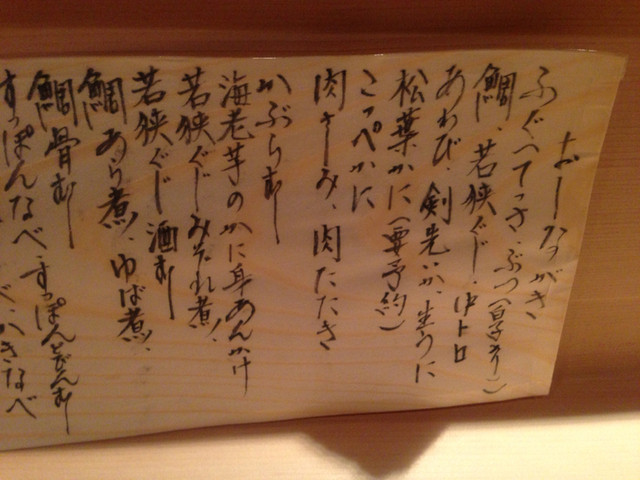 おしながき
ふぐ、てっさ、ぶつ(白子有り)
鯛、若狭ぐじ、中トロ
あわび、剣先いか、生うに
松葉かに(要予約)
こっぺかに
肉さしみ、肉たたき
かぶらむし
海老芋のかに身あんかけ
若狭ぐじみぞれ煮、
若狭ぐじ酒むし
鯛あら煮、ゆば煮、
鯛骨むし
すっぽんなべ、すっぽんどんむし
かきなべ